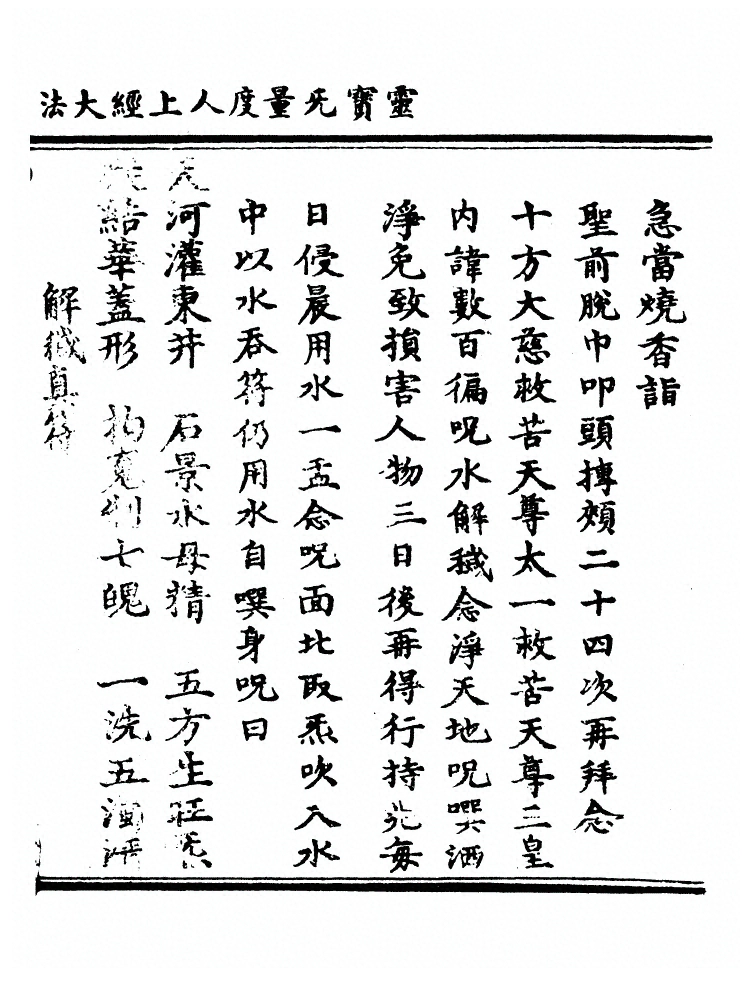 靈寶无量度人上經大法
急當燒香詣
聖前脫巾叩頭摶頰二十四次再拜念
十方大慈救苦天尊太一救苦天尊三皇
內諱數百徧呪水解穢念淨天地呪噀洒
淨免致損害人物三日後再得行持先每
日侵晨用水一盂念呪面北取炁吹入水
中以水吞符仍用水自噀身呪曰
天河灌東井 石景水母精 五方生旺炁
結華蓋形 制七魄 一洗五濁
解穢真符